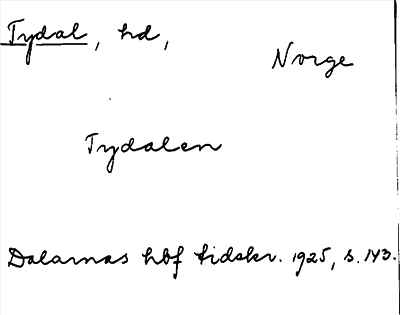 Tydal, hd,
Norge
Tydalen
Dalarnas hbf tidskr. 1925, s. 143.